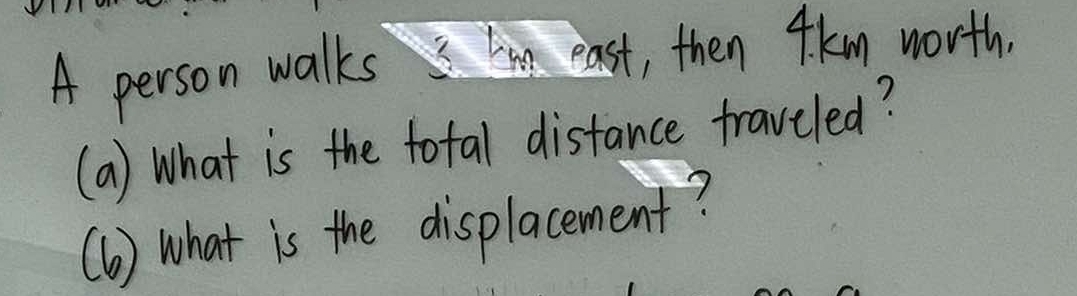 A person walks 3 km east, then 4 km north.
(a) What is the total distance traveled?
(b) What is the displacement?